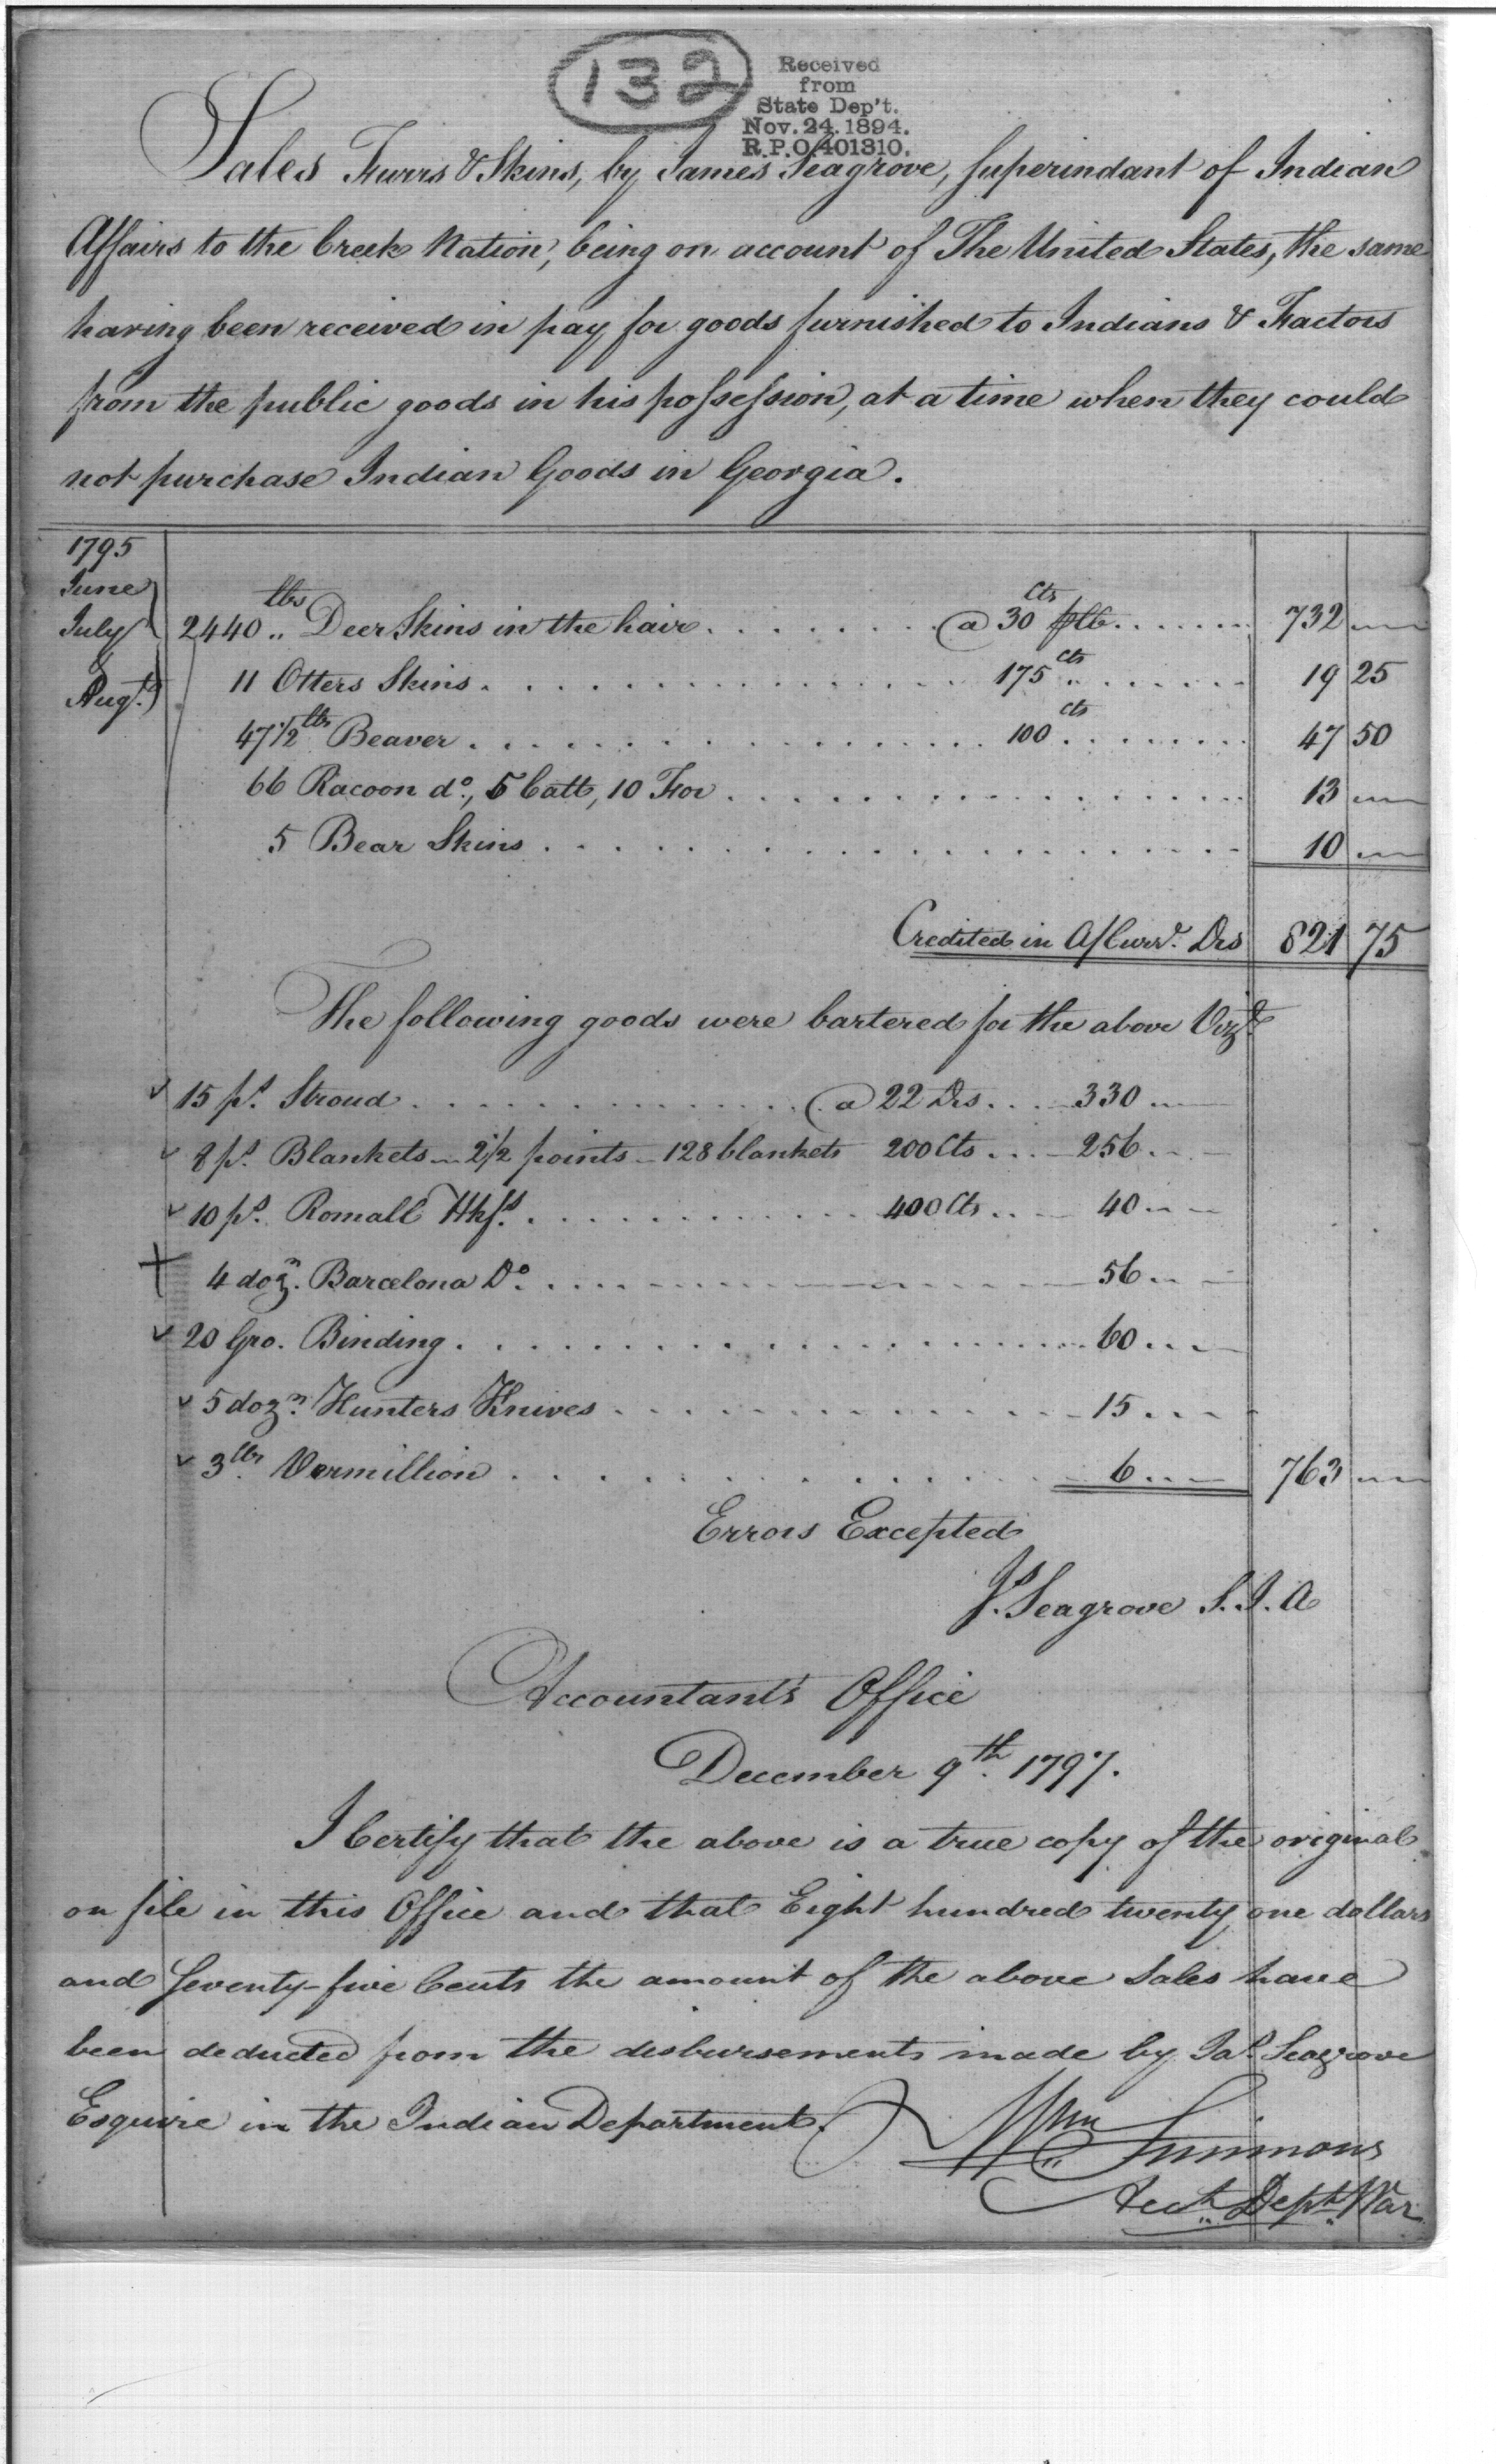 132
Received
from
State Dep't.
Nov. 24. 1894.
R.P.O. 401310.
Sales Furrs & Skins, by James Seagrove, Superindant of Indian
Affairs to the Creek Nation, being on account of The United States, the same
having been received in pay for goods furnished to Indians & Factors
from the public goods in his possession, at a time when they could
not purchase Indian Goods in Georgia.
1795
June
July 2440 lbs Deer Skins in the hair @ 30 Cts p lb 732
& 11 Otters Skins 175 cts 19 25
Augt. 47 1/2 lbs Beaver 100 cts 47 50
66 Racoon do., 5 Catt, 10 Fox 13
5 Bear Skins 10
Credited in A/Curt. Drs 821 75
The following goods were bartered for the above Vizt.
15 ps. Stroud @ 22 Drs 330
8 ps. Blankets 2 1/2 points 128 blankets 200 Cts 256
10 ps. Romall Hkfs. 400 Cts 40
4 dozn. Barcelona Do. 56
20 Gro. Binding 60
5 dozn. Hunters Knives 15
3 lbs Vermillion 6 763
Errors Excepted
Js. Seagrove S. I. A
Accountant's Office
December 9th. 1797.
I Certify that the above is a true copy of the original
on file in this Office and that Eight hundred twenty one dollars
and Seventy-five Cents the amount of the above Sales have
been deducted from the disbursements made by Jas. Seagrove
Esquire in the Indian Department.
Wm Simmons
Acct. Dept. War